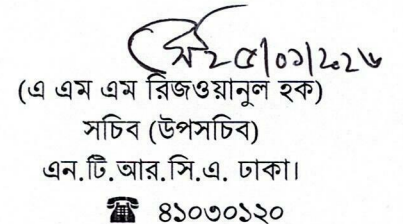 ২৫/০১/২০২৬
(এ এম এম রিজওয়ানুল হক)
সচিব (উপসচিব)
এন.টি.আর.সি.এ. ঢাকা।
☎ ৪১০৩০১২০